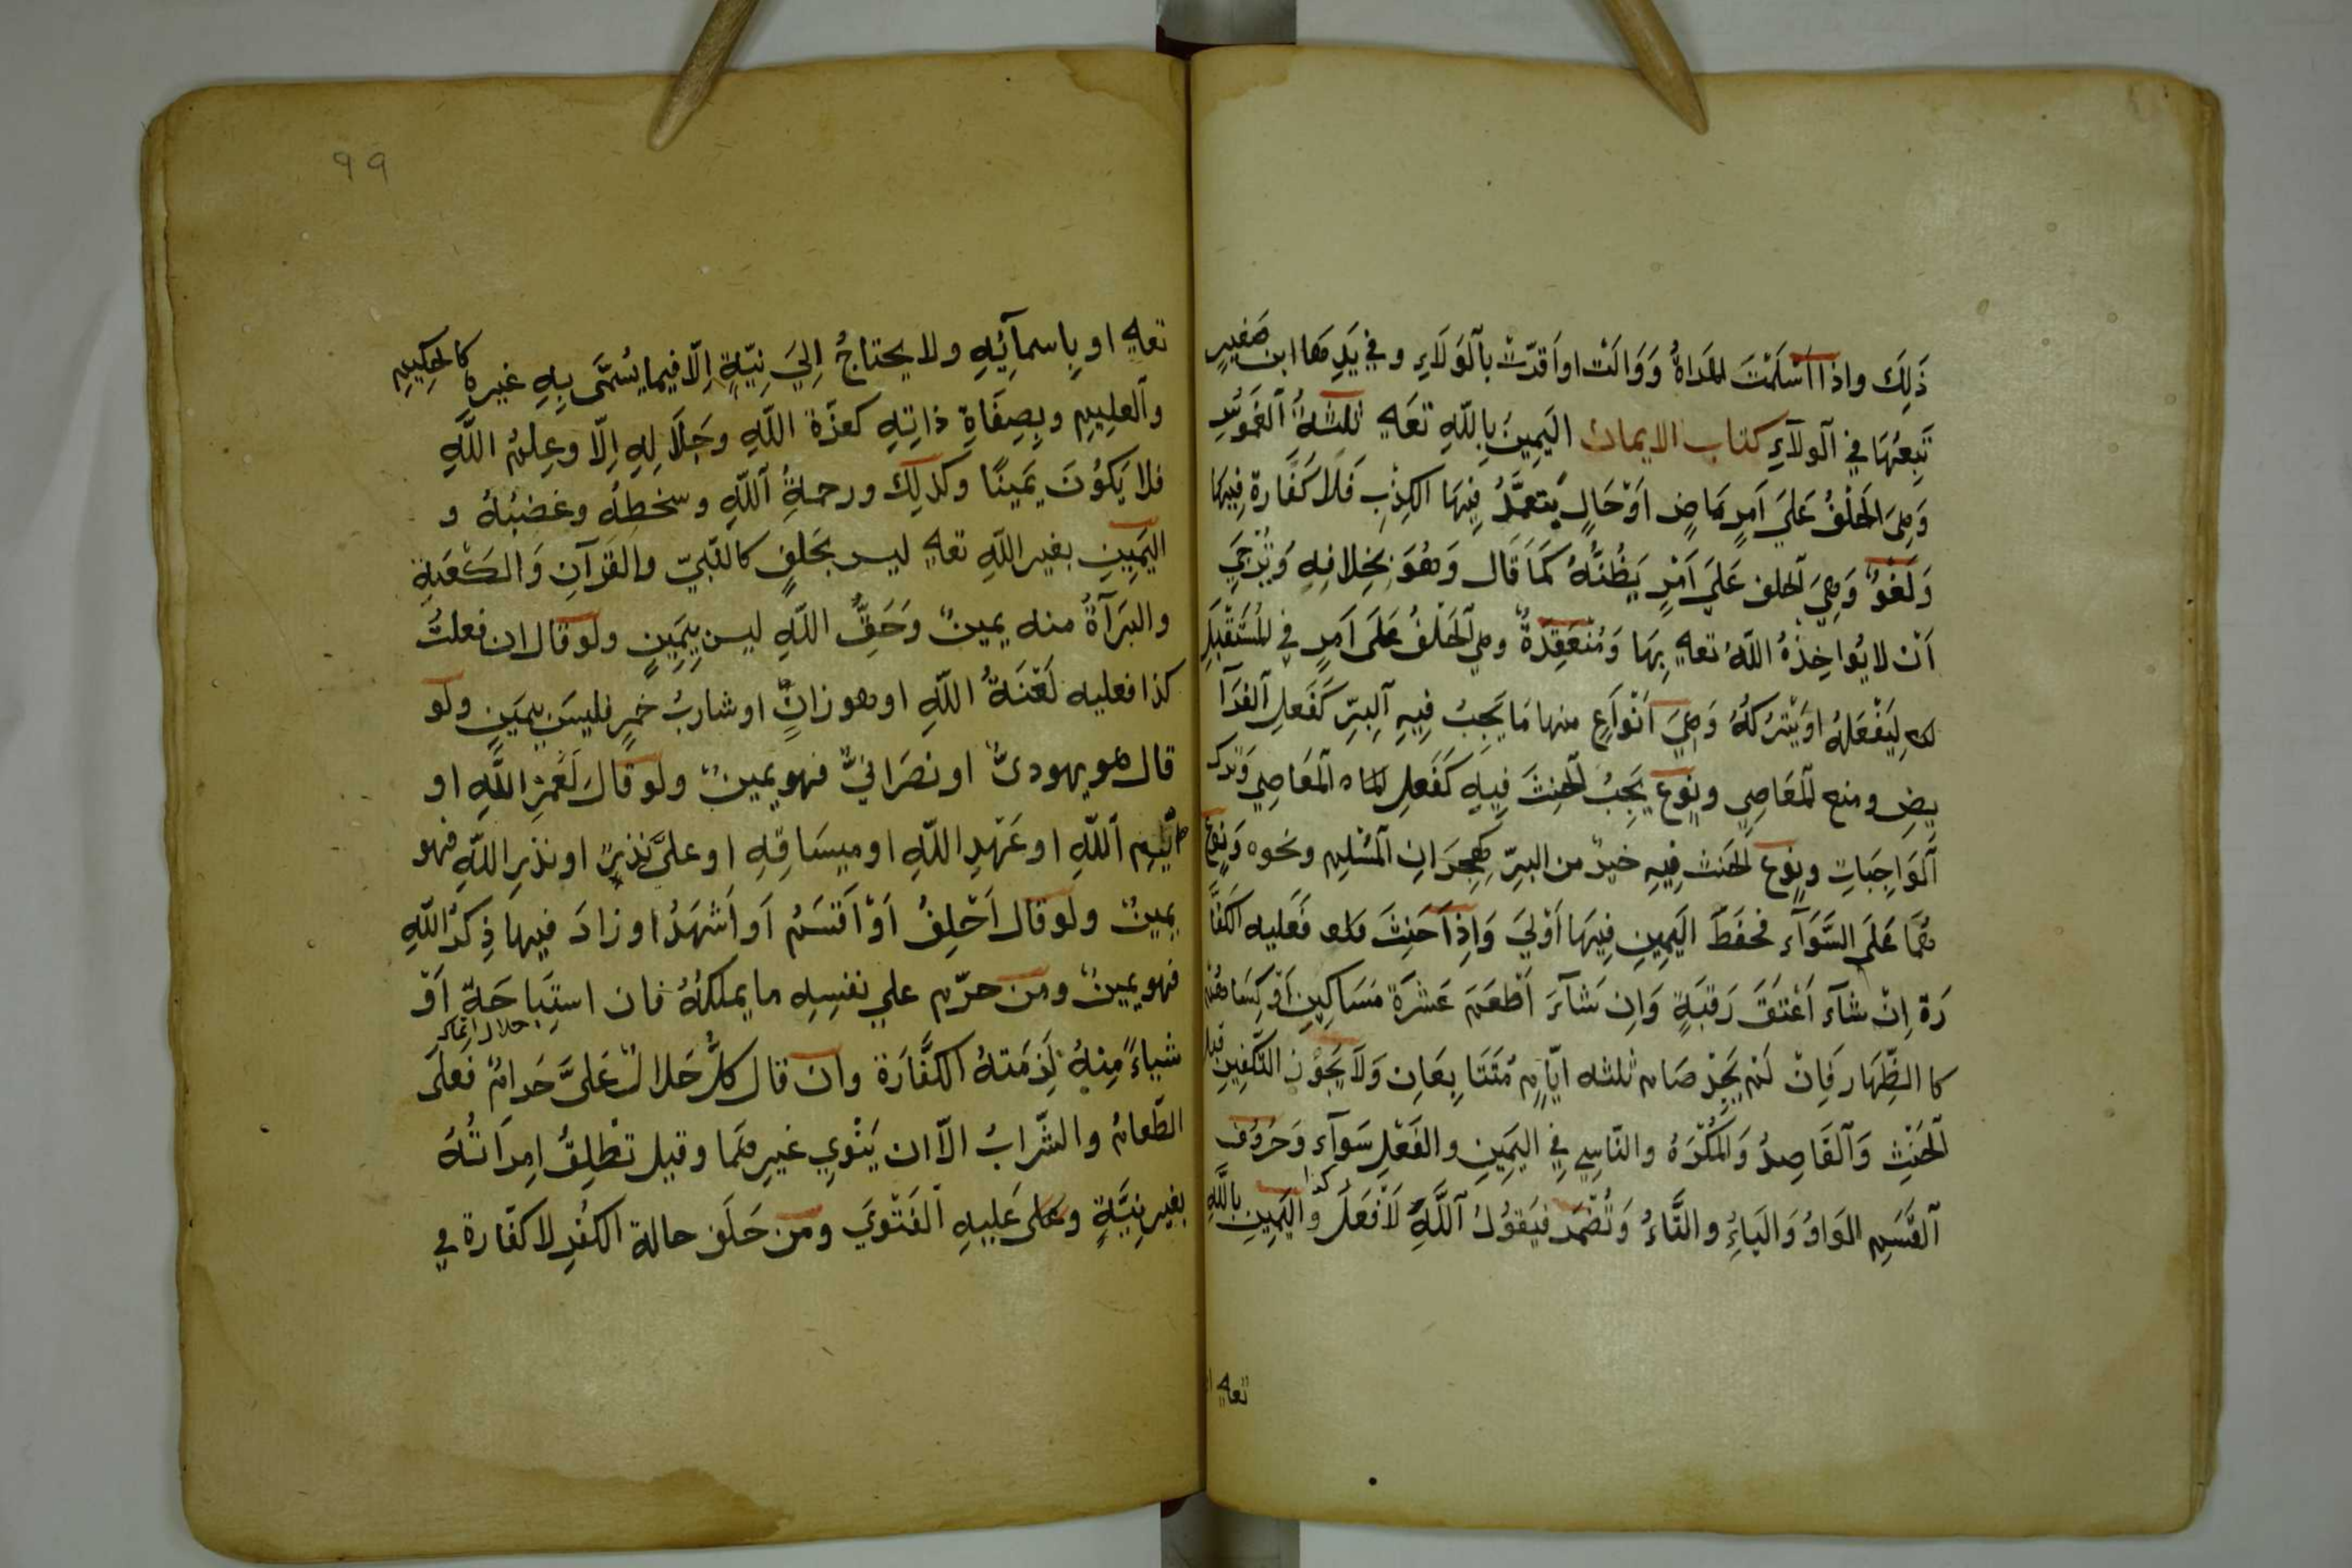 ذَلِكَ واذا اَسْلَمْتَ المَراةُ وَوَالَتْ او اَقَرّتْ بالَوَلَاءِ وفي يَدِهَا ابن صَغيرٍ
تَبِعَهَا في الَولَآءِ كتاب الايمان اليَمِينُ بِاللّهِ تعَه ثلثةُ الغَمُوسُ
وَهِىَ الحَلْفُ عَلَي اَمرٍ مَاضٍ اَوْحَالٍ يَتعمَّدُ فِيهَا الكِذْبِ فَلَا كَفَّارة فِيهَا
وَلَغْوٌ وَهِيَ الحلف عَلَي اَمْرٍ يَظُنّهُ كَمَا قَال وَهُوَ بِخِلافِهِ وَنُرْجَي
اَنْ لا يُواخِذْهُ اللّهُ تعه بِهَا وَمُنْعَقِدَةٌ وهي الحَلْفُ عَلَى اَمرٍ في المُسَتَقْبَلِ
لِيَفْعَلهُ اويَتْرُكهُ وَهِيَ اَنْوَاعٍ منها مَا يَجبُ فِيهِ البِرّ كَفَعلِ الفَرآ
يضِ ومنع المَعَاصِي ونوع يَجِبُ الحِنِثَ فِيهِ كَفَعلِ المَعَاصِي وَترك
الَوَاجِبَاتِ ونوع الحَنث فِيهِ خيرٌ من البرّ كهِجرَانِ المُسْلِمِ ونحوه وَنوع
هُمَا عَلَى السَّوَآءِ فحْفَظُ اليَمِينِ فِيهَا اَوْلَي وَاِذا حَنِثَ فَعَليه الكَفَّا
رَة اِنْ شآءَ اَعْتَقَ رَقبَةٍ وَاِن شَآءَ اَطْعَمَ عَشرَة مَسَاكِينِ اَوْ كِسَاهُم
كا الظِّهَار فَاِنْ لَمْ يَجِدْ صَام ثلثه ايّامٍ مُتَتَابِعَاتِ وَلَا يَجُوز التّكفِينِ قبل
الحَنِثِ وَالقَاصِدُ وَالمُكْرَهُ والنّاسِي في اليَمِينِ والفَعْلِ سَوآءٌ وَحرُوف
القَسَمِ الوَاوُ وَالبَاءُ والتَّاءُ وَتُضْمَر فيَقوُلُ اللّهِ لَاَفْعَلُ كذا وَاليَمِينِ بِاللّهِ
تعه
99
تعه او بِاسمآئِهِ ولا يحتاجُ اِلَيَ نيّةٍ اِلّا فيما يُسَمَّى بِهِ غيره كالحكيمِ
والعلِيمِ وبِصِفَاةِ ذاتِهِ كعزّة اللّهِ وجَلَالِهِ اِلّا وعِلمُ اللّهِ
فلا يَكوُنَ يَمينًا وكذلِك ورحمةُ اللّهِ وسخطِهُ وغضبُهُ و
اليَمِينِ بغير اللّهِ تعه ليس بحَلفٍ كالنّبيّ والقرآنِ وَالكعْبَةِ
والبَرآةُ منه يمينٌ وَحَقُّ اللّهِ ليس بِيَمِينٍ ولو قال ان فعلتُ
كذا فعليه لَعْنَةُ اللّهِ اوهو زانٍ او شاربُ خمرٍ فليسَ بيمَينٍ ولو
قال هو يهوديٌّ او نصرَانيٌّ فهو يمينٌ ولو قالَ لَعَمْرِ اللّهِ او
اَيْمِ اللّهِ او عَهْدِ اللّهِ او ميسَاقِهِ او علىَّ نذرٍ او نذرِ اللّهِ فهو
يمينٌ ولو قال اَحْلِفُ اَوْ اَقسَمُ اَو اَشهَدُ او زادَ فيها ذِكرَ اللّهِ
فهو يمينٌ ومَن حرّم علي نفسِهِ ما يملكهُ فان استِبَاحَهُ اَوْ
شياءً مِنهُ لَزِمَتهُ الكفَّارَة وان قال كُلُّ حَلالٍ عَلىَّ حَرامٌ فَعلى
الطّعامُ والشّرابُ الاّ ان يَنْوي غيرِهَما وقيل تطْلِقُ امِرَاتُهُ
بغير نيّةٍ وعلى عَليهِ الفَتْويَ ومَن حَلَف حالة الكفُرِ لا كفّارة في